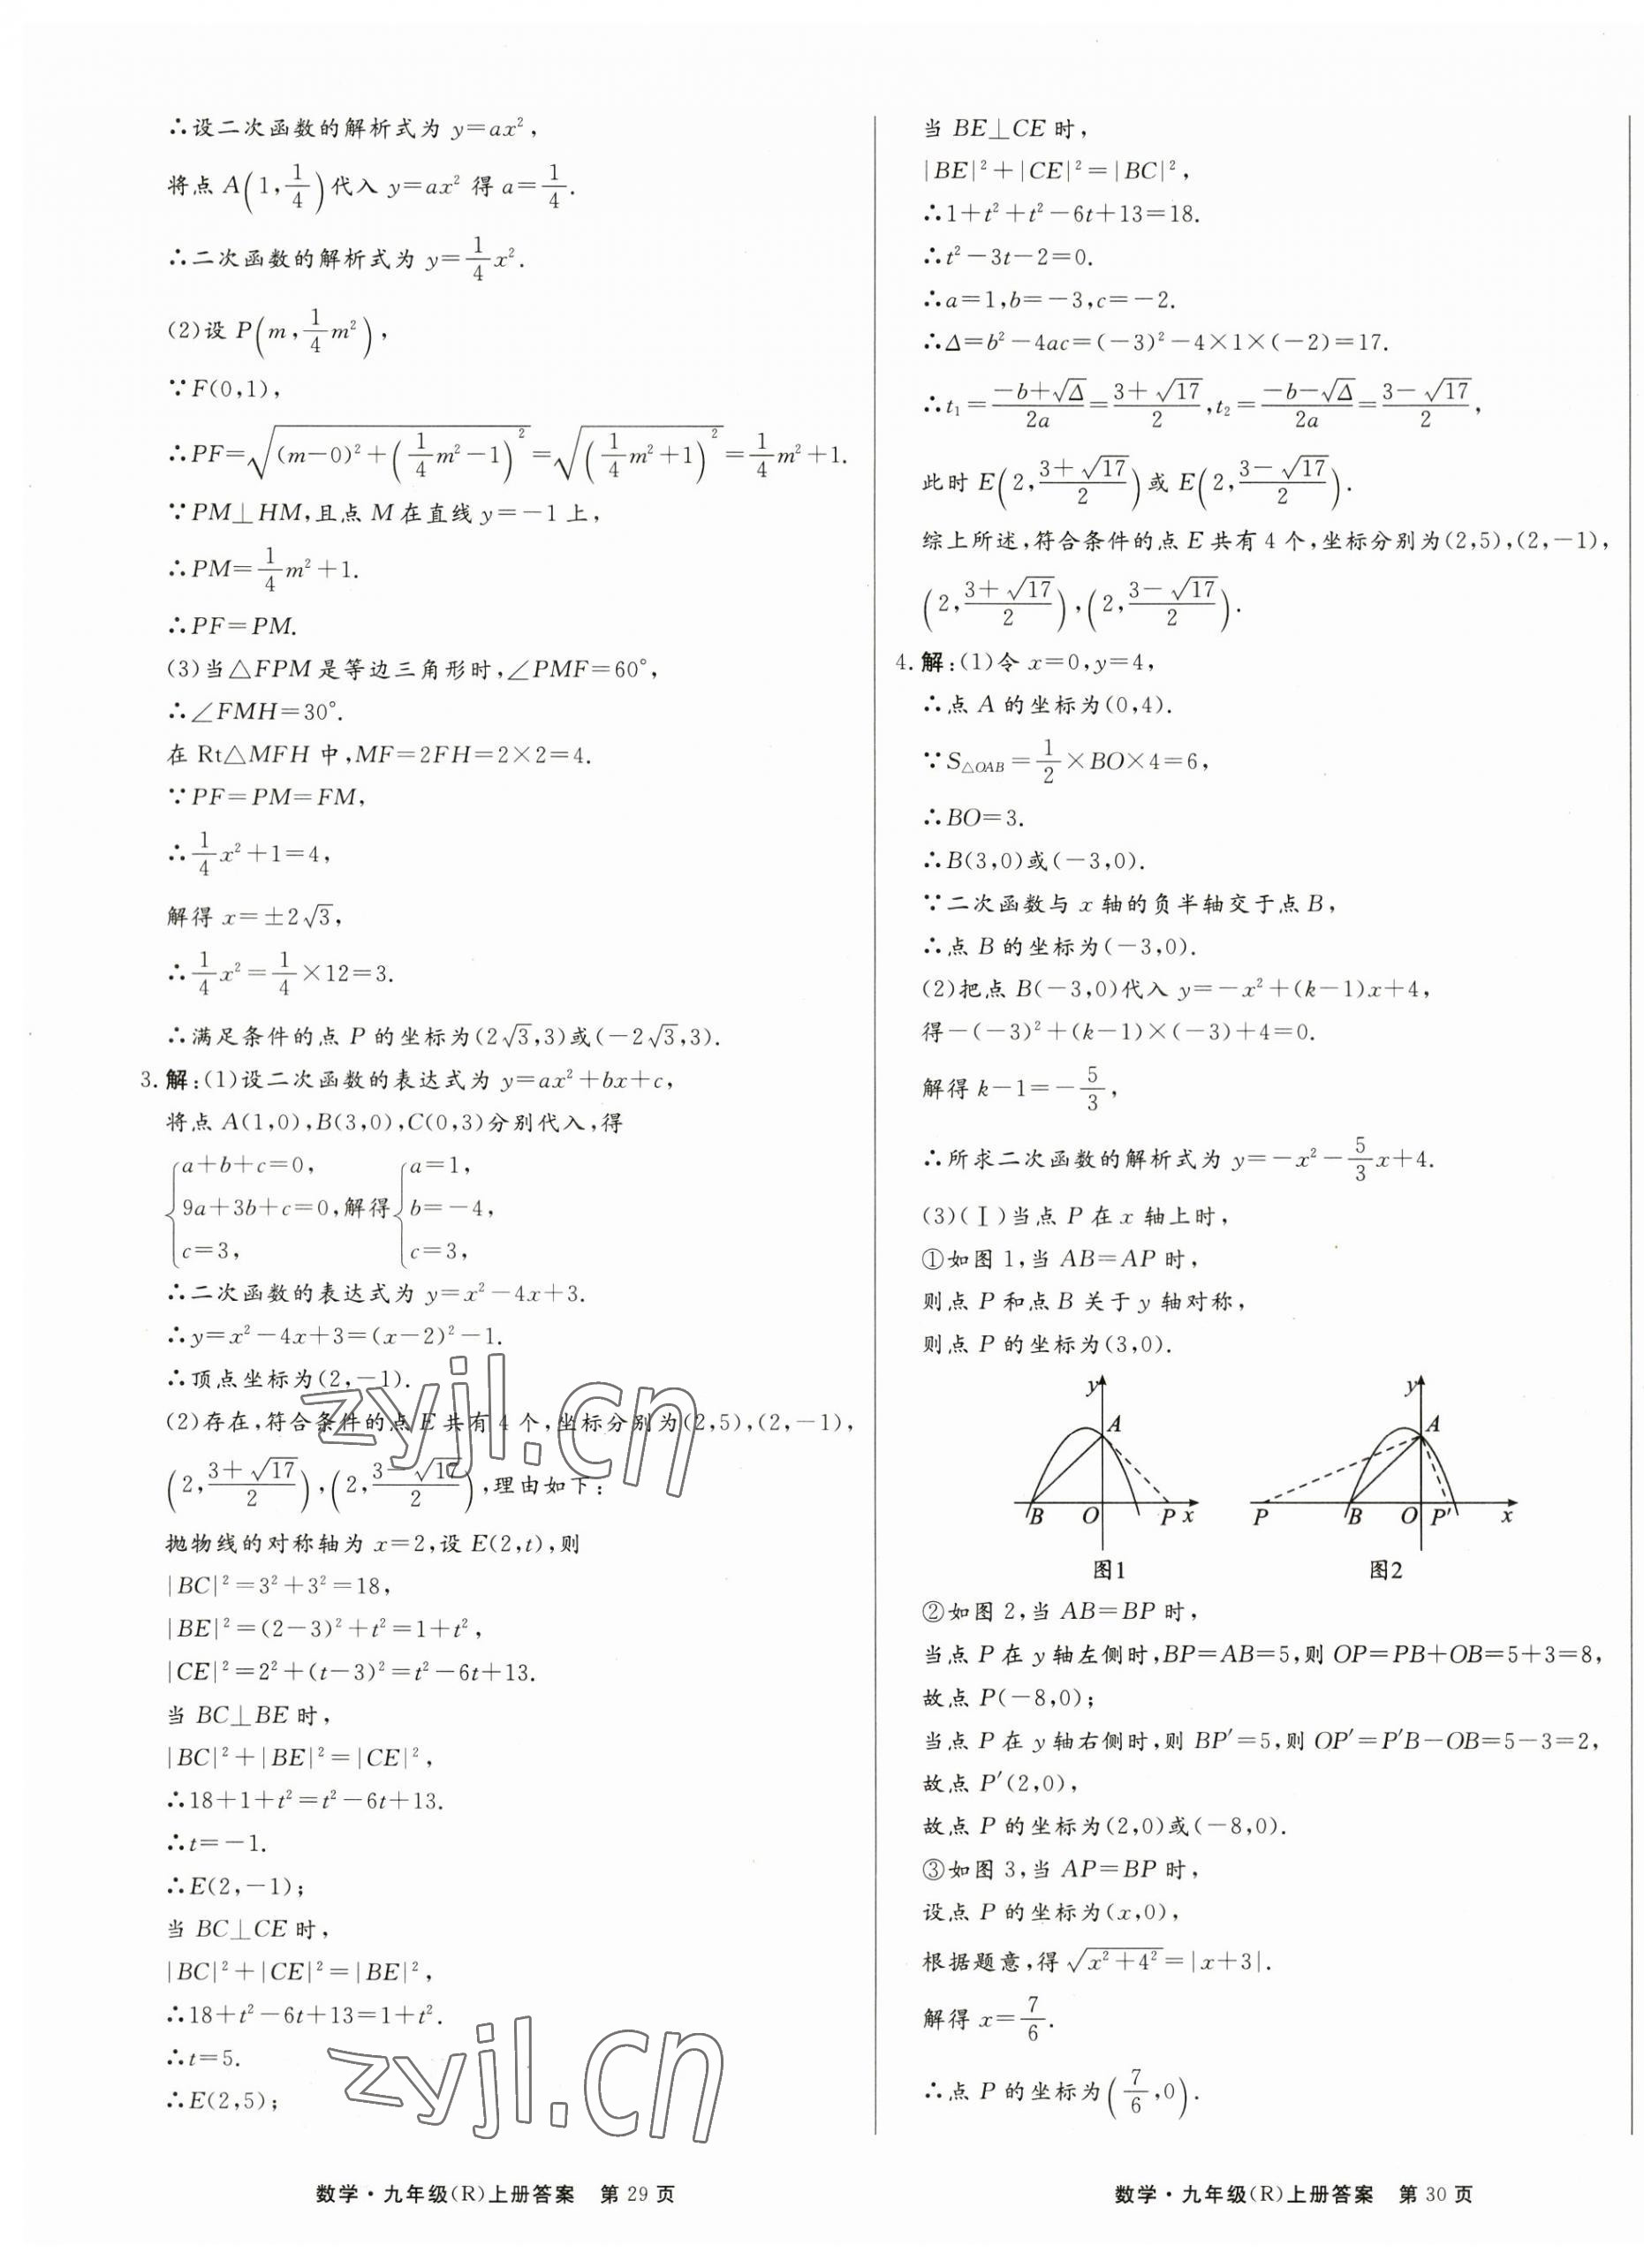 ∴设二次函数的解析式为 y=ax²,
将点 A(1,1/4)代入 y=ax² 得 a=1/4.
∴二次函数的解析式为 y=1/4x².
(2)设 P(m,1/4m²),
∵F(0,1),
∴PF=√((m-0)²+(1/4m²-1)²)=√((1/4m²+1)²)=1/4m²+1.
∵PM⊥HM,且点 M 在直线 y=-1 上,
∴PM=1/4m²+1.
∴PF=PM.
(3)当△FPM 是等边三角形时,∠PMF=60°,
∴∠FMH=30°.
在 Rt△MFH 中,MF=2FH=2×2=4.
∵PF=PM=FM,
∴1/4x²+1=4,
解得 x=±2√3,
∴1/4x²=1/4×12=3.
∴满足条件的点 P 的坐标为(2√3,3)或(-2√3,3).
3. 解:(1)设二次函数的表达式为 y=ax²+bx+c,
将点 A(1,0),B(3,0),C(0,3)分别代入,得
a+b+c=0, a=1,
9a+3b+c=0,解得 b=-4,
c=3, c=3,
∴二次函数的表达式为 y=x²-4x+3.
∴y=x²-4x+3=(x-2)²-1.
∴顶点坐标为(2,-1).
(2)存在,符合条件的点 E 共有 4 个,坐标分别为(2,5),(2,-1),
(2,(3+√17)/2),(2,(3-√17)/2),理由如下:
抛物线的对称轴为 x=2,设 E(2,t),则
|BC|²=3²+3²=18,
|BE|²=(2-3)²+t²=1+t²,
|CE|²=2²+(t-3)²=t²-6t+13.
当 BC⊥BE 时,
|BC|²+|BE|²=|CE|²,
∴18+1+t²=t²-6t+13.
∴t=-1.
∴E(2,-1);
当 BC⊥CE 时,
|BC|²+|CE|²=|BE|²,
∴18+t²-6t+13=1+t².
∴t=5.
∴E(2,5);
zyjl.cn
zyjl.cn
数学·九年级(R)上册答案 第 29 页
当 BE⊥CE 时,
|BE|²+|CE|²=|BC|²,
∴1+t²+t²-6t+13=18.
∴t²-3t-2=0.
∴a=1,b=-3,c=-2.
∴Δ=b²-4ac=(-3)²-4×1×(-2)=17.
∴t₁=(-b+√Δ)/2a=(3+√17)/2,t₂=(-b-√Δ)/2a=(3-√17)/2,
此时 E(2,(3+√17)/2)或 E(2,(3-√17)/2).
综上所述,符合条件的点 E 共有 4 个,坐标分别为(2,5),(2,-1),
(2,(3+√17)/2),(2,(3-√17)/2).
4. 解:(1)令 x=0,y=4,
∴点 A 的坐标为(0,4).
∵S△OAB=1/2×BO×4=6,
∴BO=3.
∴B(3,0)或(-3,0).
∵二次函数与 x 轴的负半轴交于点 B,
∴点 B 的坐标为(-3,0).
(2)把点 B(-3,0)代入 y=-x²+(k-1)x+4,
得-(-3)²+(k-1)×(-3)+4=0.
解得 k-1=-5/3,
∴所求二次函数的解析式为 y=-x²-5/3x+4.
(3)(Ⅰ)当点 P 在 x 轴上时,
①如图 1,当 AB=AP 时,
则点 P 和点 B 关于 y 轴对称,
则点 P 的坐标为(3,0).
y A B O P x
图1
y A P B O P′ x
图2
②如图 2,当 AB=BP 时,
当点 P 在 y 轴左侧时,BP=AB=5,则 OP=PB+OB=5+3=8,
故点 P(-8,0);
当点 P 在 y 轴右侧时,则 BP′=5,则 OP′=P′B-OB=5-3=2,
故点 P′(2,0),
故点 P 的坐标为(2,0)或(-8,0).
③如图 3,当 AP=BP 时,
设点 P 的坐标为(x,0),
根据题意,得√(x²+4²)=|x+3|.
解得 x=7/6.
∴点 P 的坐标为(7/6,0).
数学·九年级(R)上册答案 第 30 页